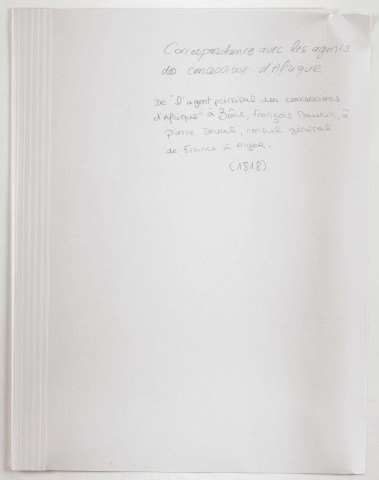 Correspondance avec les agents
des concessions d'Afrique
De "l'agent principal des concessions
d'Afrique" à Bône, François Maurin, à
Pierre Deval, consul général
de France à Alger.
(1818)